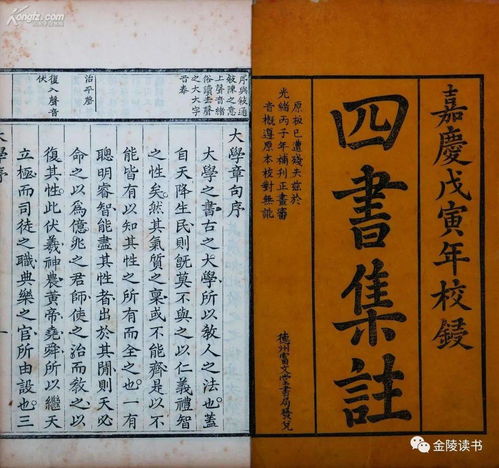 嘉慶戊寅年校鋟
四書集註
原板已遭殘失茲於
光緒丙子年補刋正畫審
音概遵原本校對無訛
德州富文堂書局發兌
序與敘通
敘陳之意
上聲音緒
俗讀去聲
之大大字
音泰
治平聲
復入聲音
伏
大學章句序
大學之書古之大學所以教人之法也蓋
自天降生民則旣莫不與之以仁義禮智
之性矣然其氣質之稟或不能齊是以不
能皆有以知其性之所有而全之也一有
聰明睿智能盡其性者出於其閒則天必
命之以爲億兆之君師使之治而教之以
復其性此伏羲神農黃帝堯舜所以繼天
立極而司徒之職典樂之官所由設也三
大學序
一
Kongfz.com
金陵读书